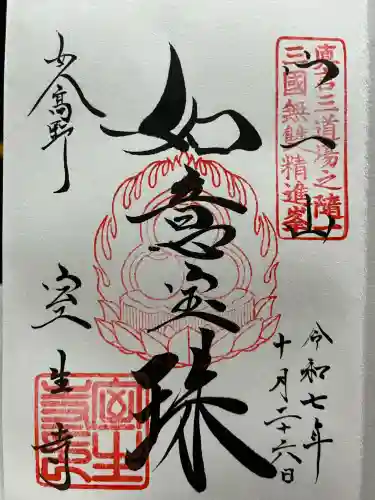 宀一山
真言三道場之随一
三國無雙精進峯
令和七年
十月二十六日
如意宝珠
女人高野
室生寺